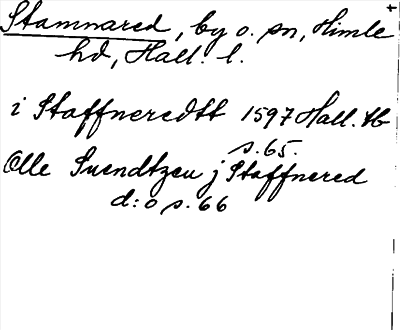 Stamnared, by o. sn, Himle
hd, Hall. l.
i Staffneredtt 1597 Hall. tb
s. 65.
Olle Suendtzen j Staffnered
d:o s. 66